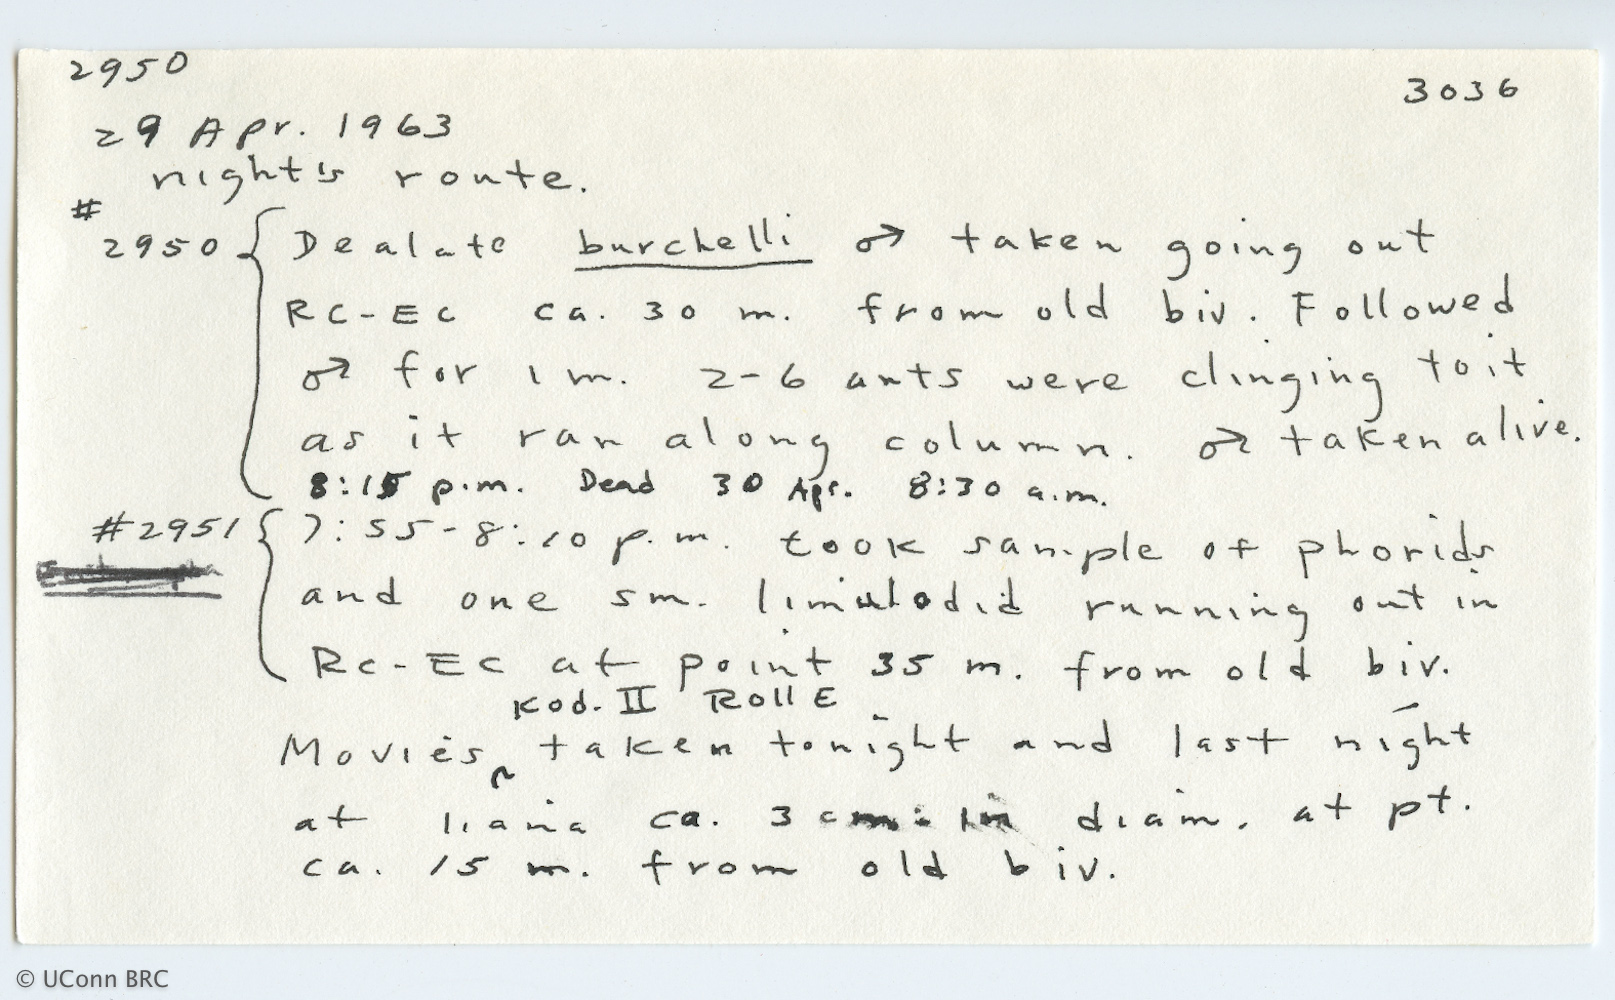 2950
3036
29 Apr. 1963
night's route.
#
2950 { Dealate burchelli ♂ taken going out
RC-EC ca. 30 m. from old biv. Followed
♂ for 1 m. 2-6 ants were clinging to it
as it ran along column. ♂ taken alive.
8:15 p.m. Dead 30 Apr. 8:30 a.m.
#2951 { 7:55-8:10 p.m. took sample of phorids
and one sm. limulodid running out in
RC-EC at point 35 m. from old biv.
Kod. II Roll E
Movies ^ taken tonight and last night
at liana ca. 3 cm. in diam. at pt.
ca. 15 m. from old biv.
© UConn BRC